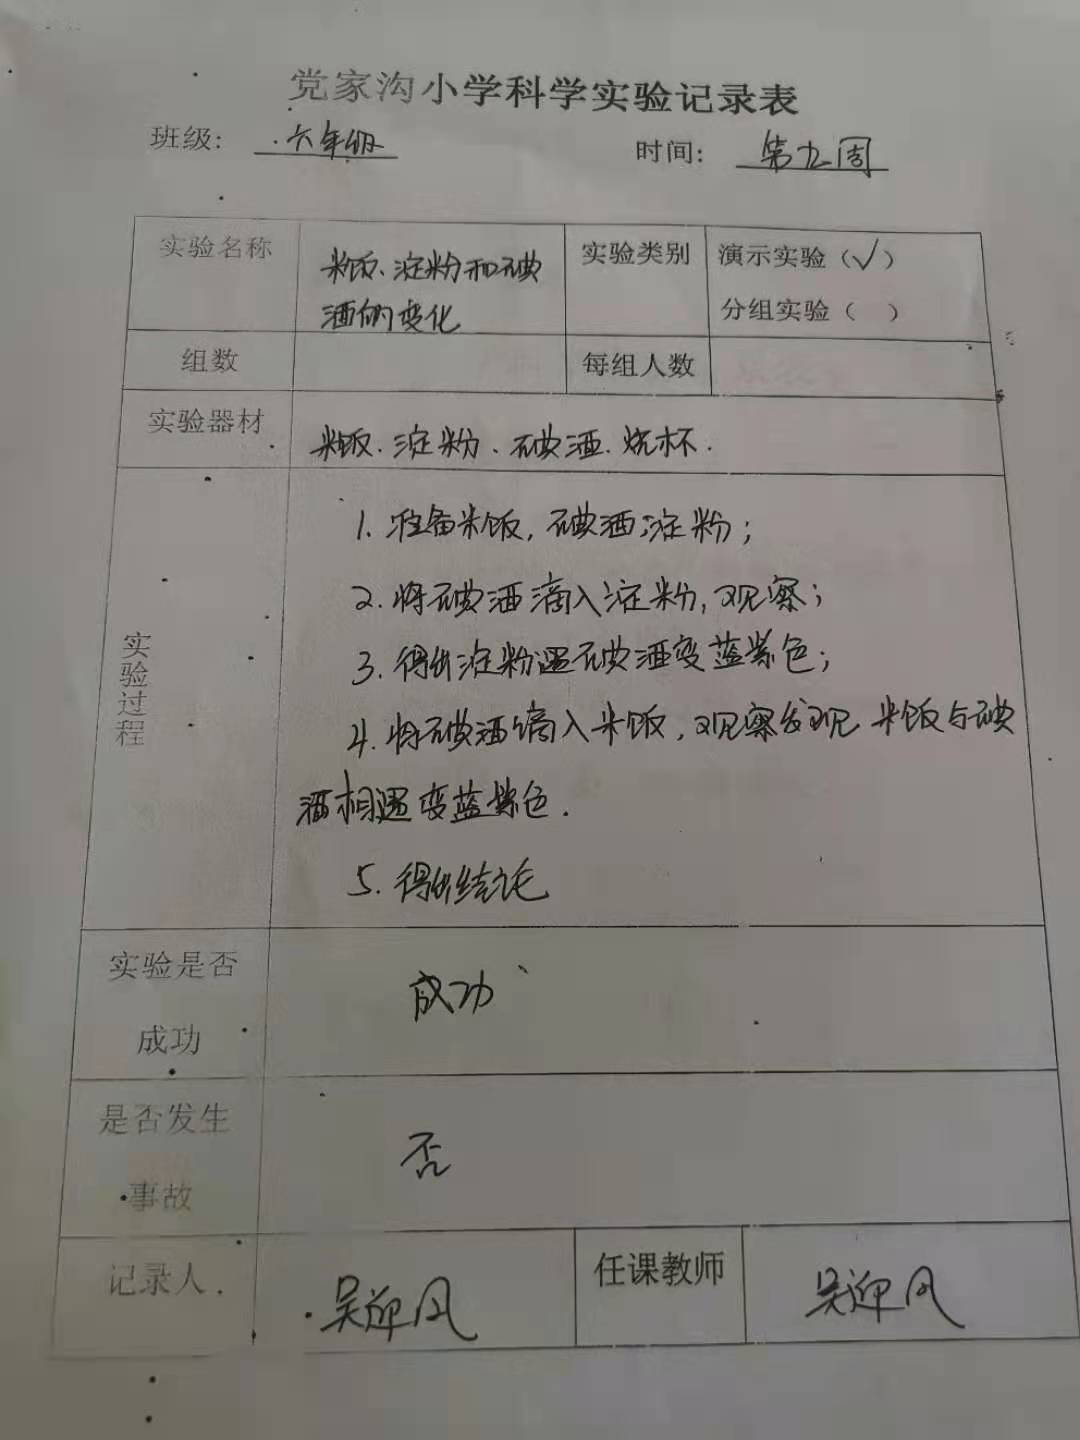 党家沟小学科学实验记录表
班级: 六年级 时间: 第九周
实验名称 米饭、淀粉和碘 实验类别 演示实验（√）
酒的变化 分组实验（ ）
组数 每组人数
实验器材 米饭.淀粉、碘酒.烧杯.
实验过程
1. 准备米饭,碘酒,淀粉;
2. 将碘酒滴入淀粉,观察;
3. 得出淀粉遇碘酒变蓝紫色;
4. 将碘酒滴入米饭,观察发现 米饭与碘
酒相遇变蓝紫色.
5. 得出结论
实验是否
成功 成功
是否发生
事故 否
记录人 吴迎风 任课教师 吴迎风